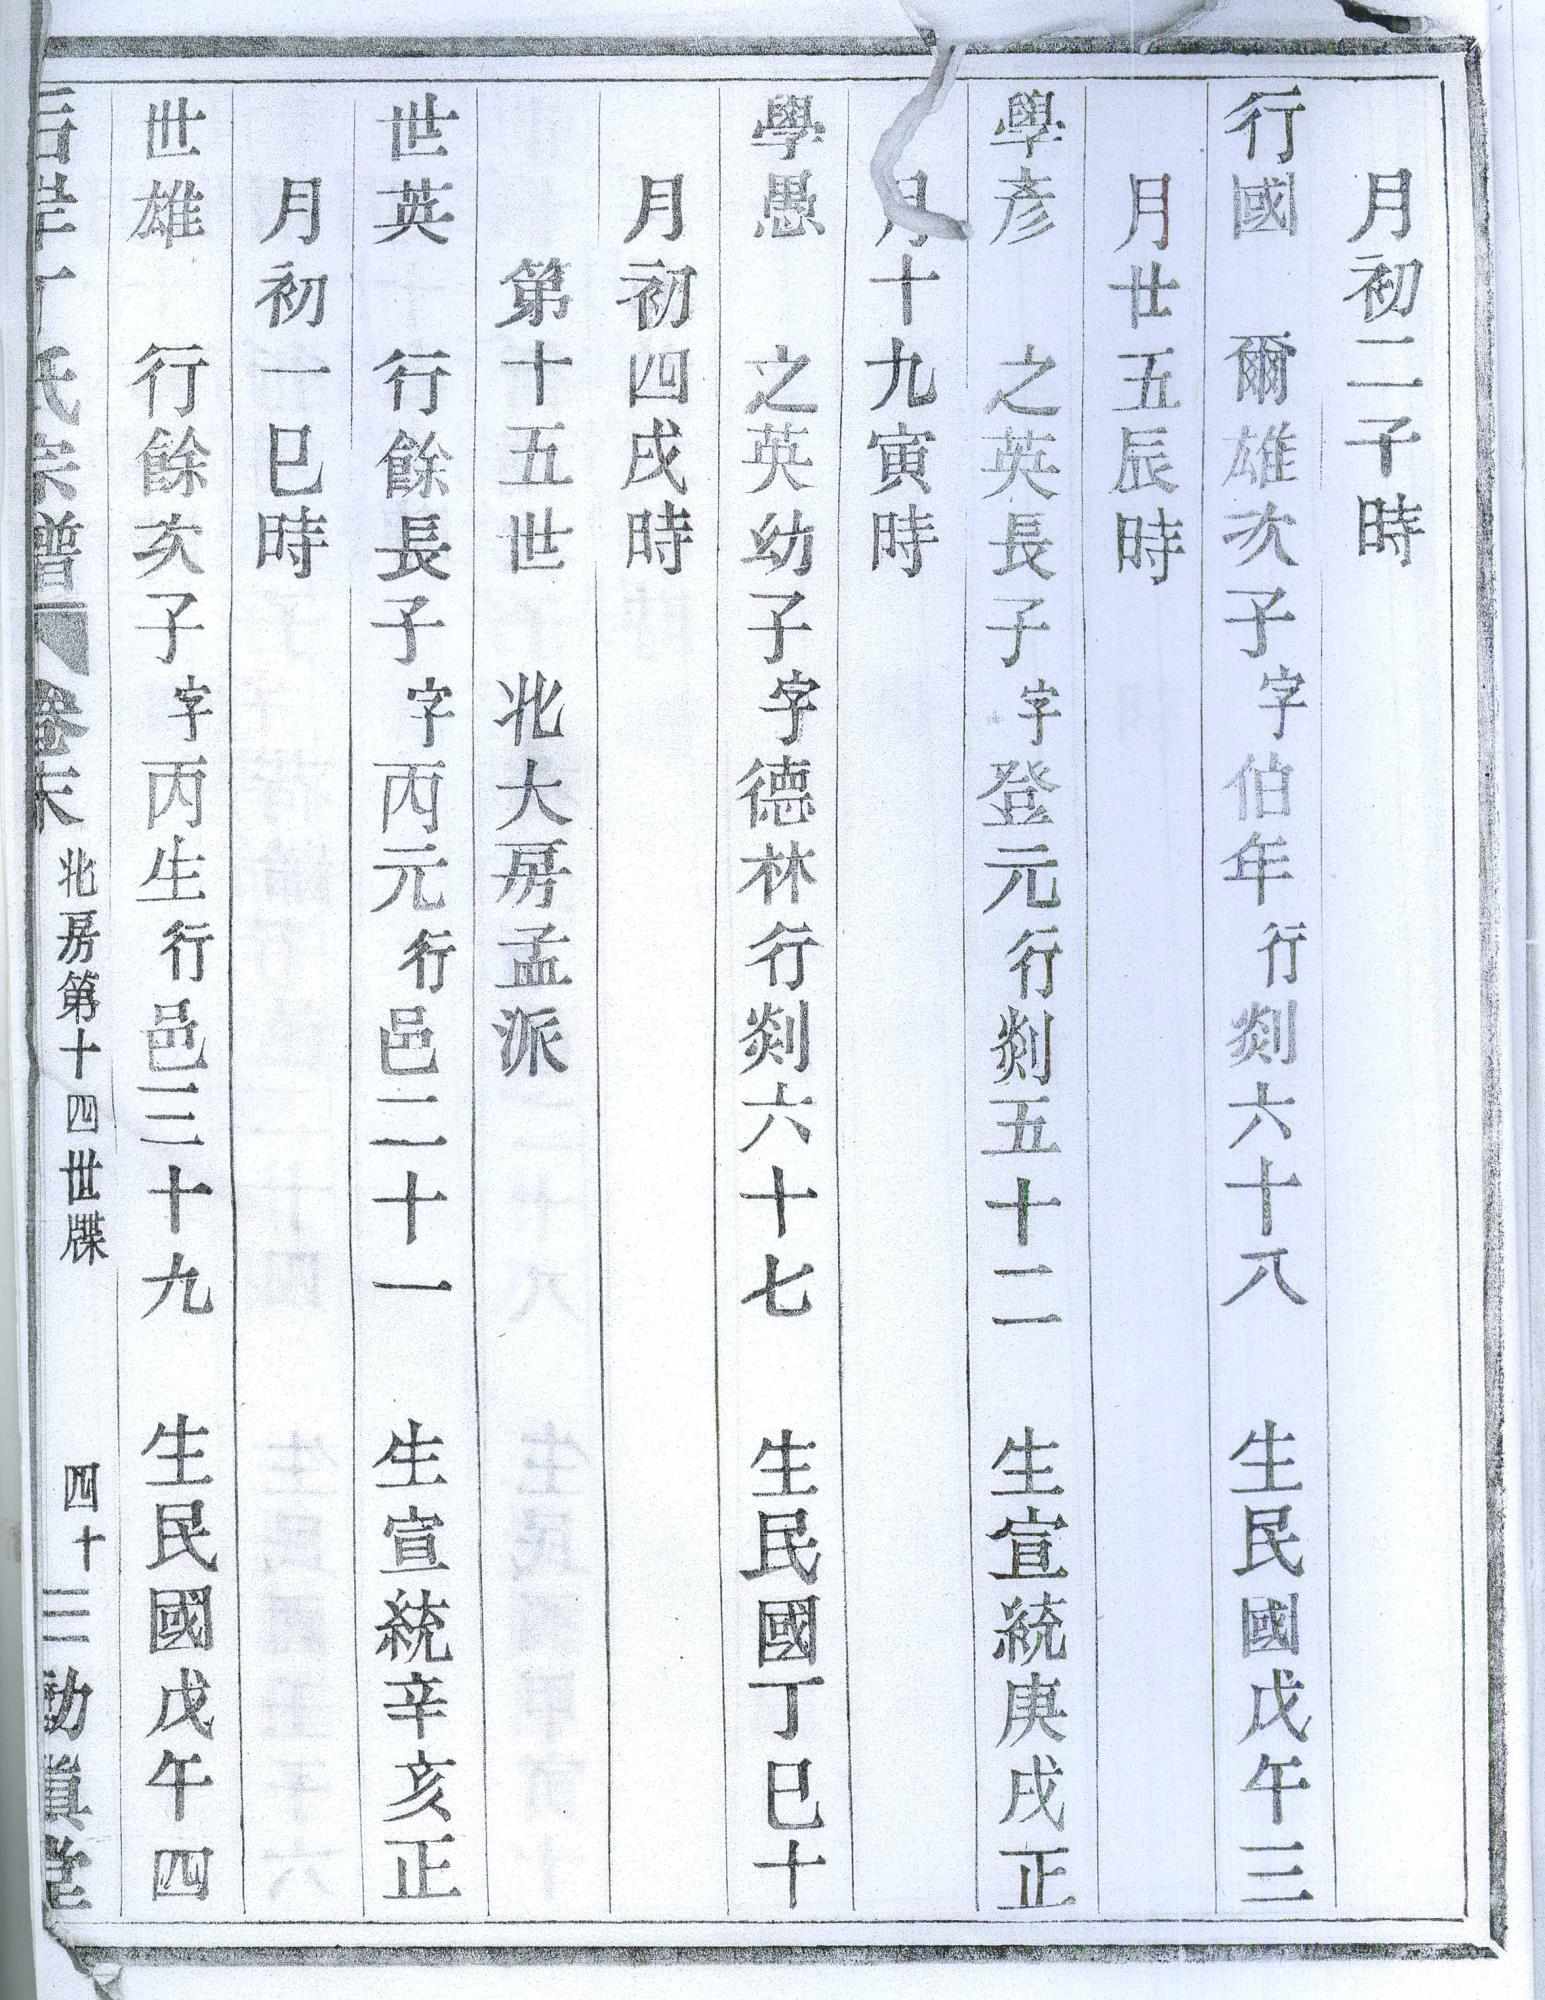 月初二子時
行國　爾雄次子字伯年行剡六十八　生民國戊午三
月廿五辰時
學彥　之英長子字登元行剡五十二　生宣統庚戌正
月十九寅時
學愚　之英幼子字德林行剡六十七　生民國丁巳十
月初四戌時
第十五世　北大房孟派
世英　行餘長子字丙元行邑二十一　生宣統辛亥正
月初一巳時
世雄　行餘次子字丙生行邑三十九　生民國戊午四
丁氏宗譜　卷末　北房第十四世牒　四十三　勛眞堂